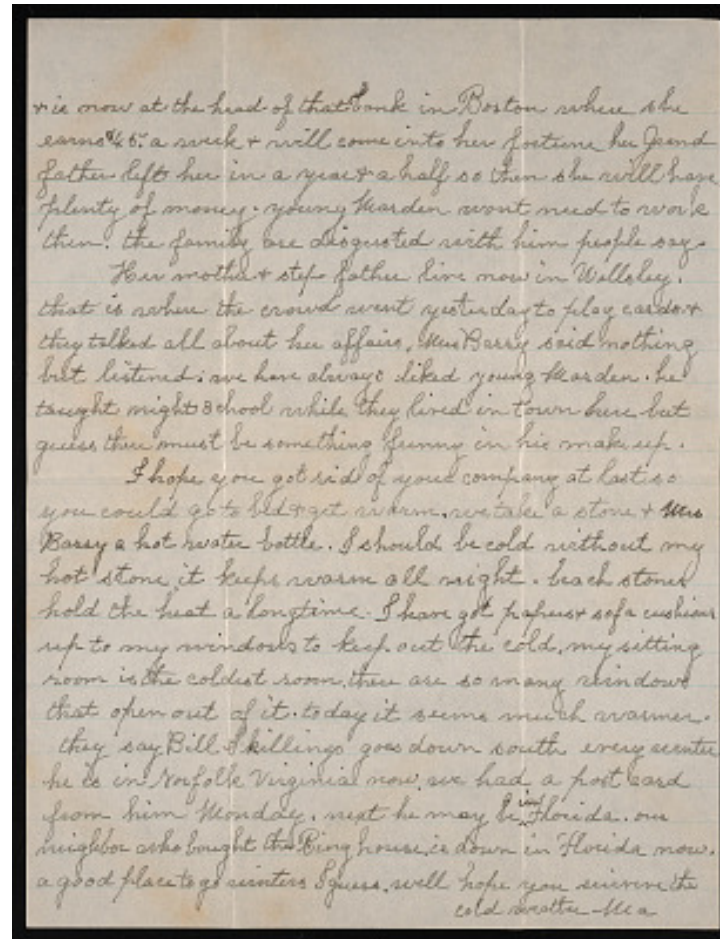 & is now at the head of that bank in Boston where she
earns $45. a week & will come into her fortune her Grand
father left her in a year & a half so then she will have
plenty of money. young Marden wont need to work
then. the family are disgusted with him people say.
Her mother & step father live now in Wellsley.
that is where the crowd went yesterday to play cards &
they talked all about her affairs. Mrs Barry said nothing
but listened. we have always liked young Marden. he
taught night school while they lived in town here but
guess there must be something funny in his make up.
I hope you got rid of your company at last so
you could go to bed & get warm. we take a stone & Mrs
Barry a hot water bottle. I should be cold without my
hot stone it keeps warm all night. beach stones
hold the heat a longtime. I have got papers & sofa cushions
up to my windows to keep out the cold. my sitting
room is the coldest room. there are so many windows
that open out of it. today it seems much warmer.
they say Bill Skillings goes down south every winter
he is in Norfolk Virginia now. we had a post card
from him Monday. next he may be in Florida. our
neighbor who bought the Bing house is down in Florida now.
a good place to go winters I guess. well hope you survive the
cold weather - Ma